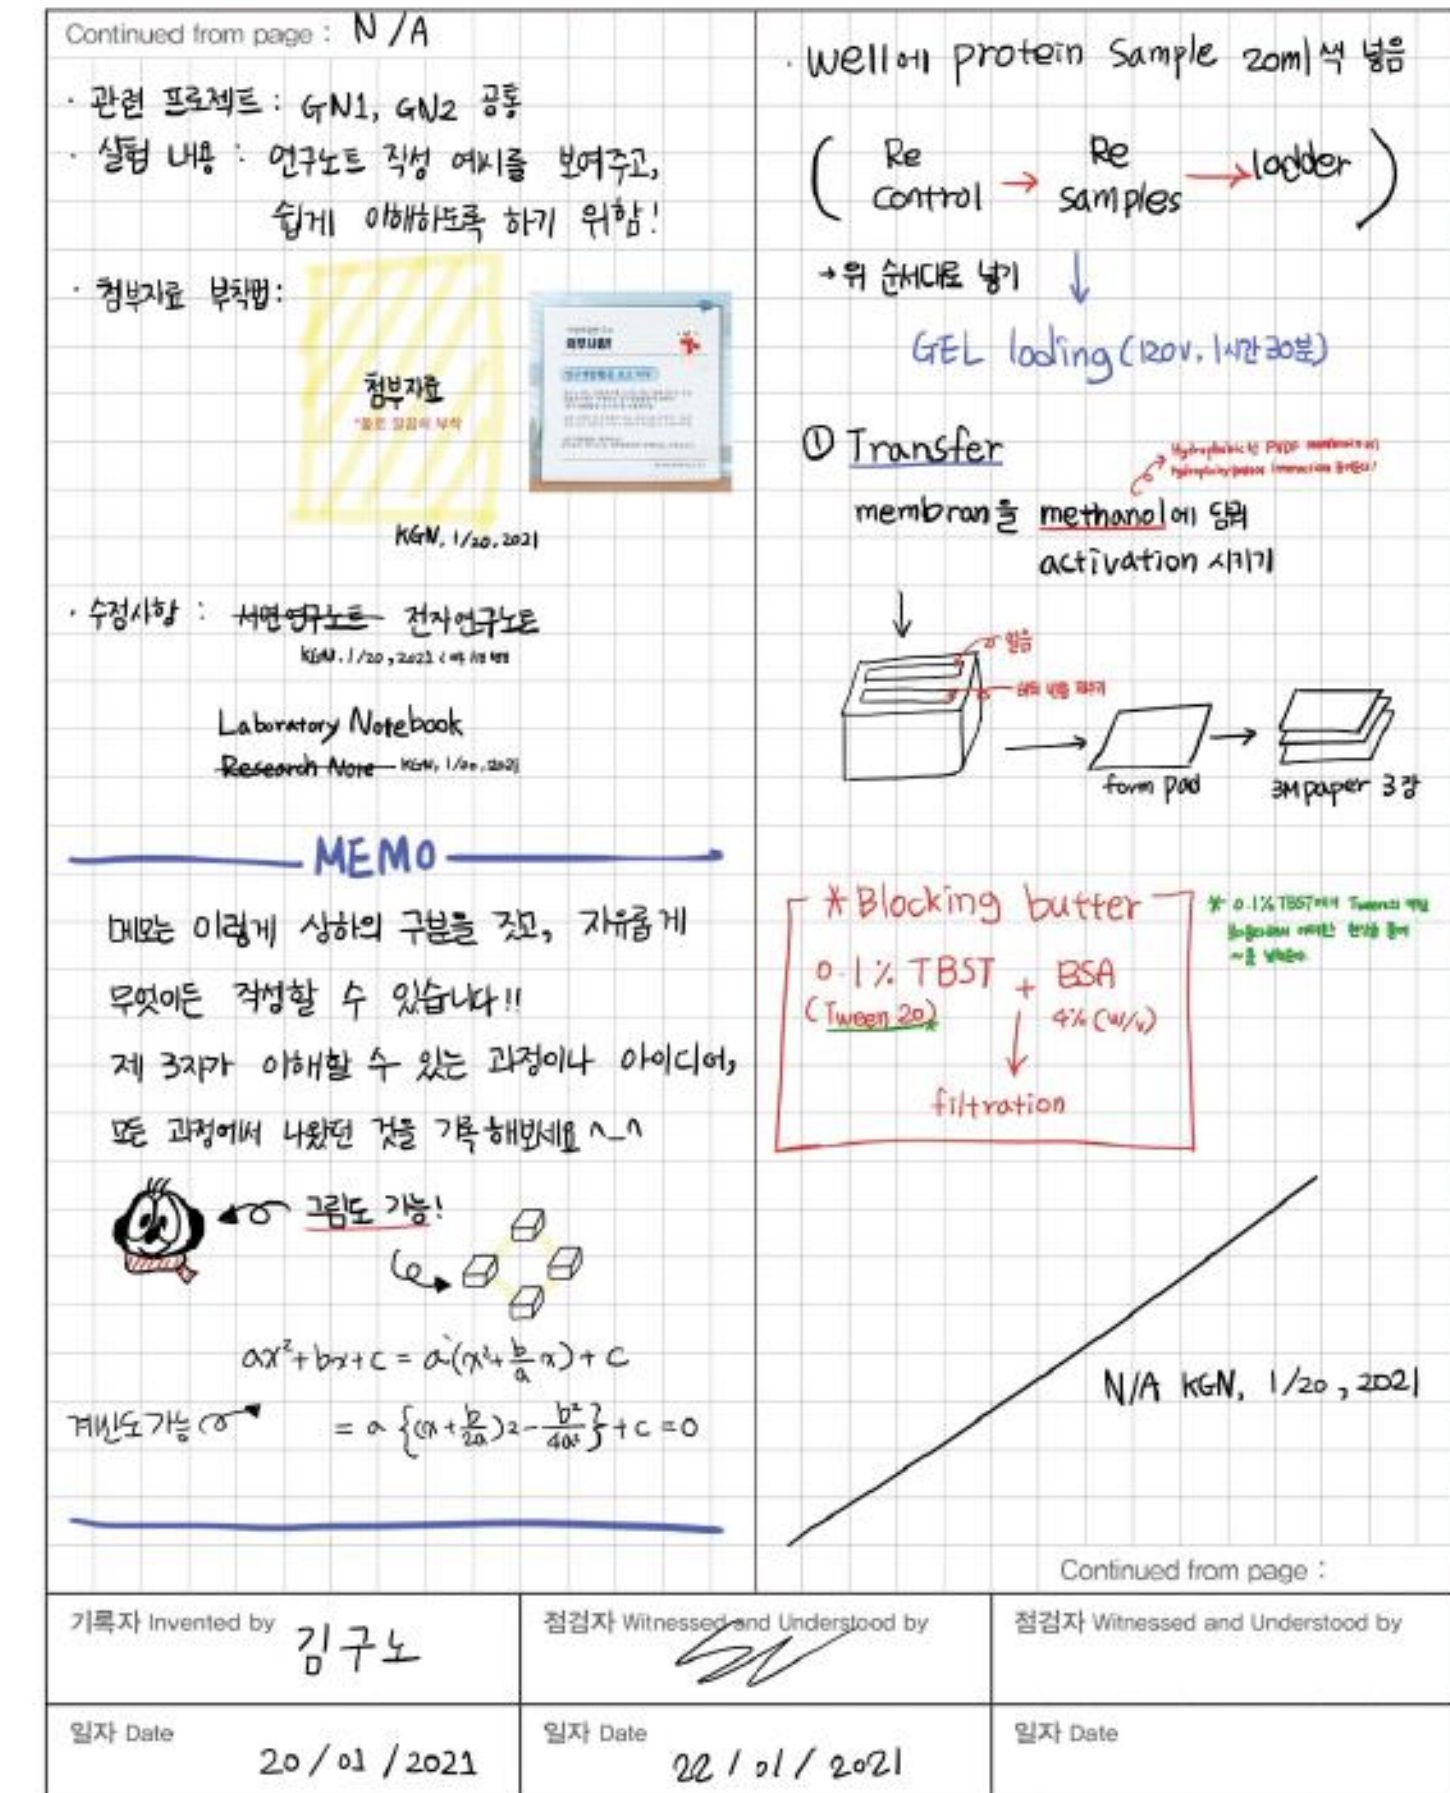 Continued from page : N/A
· 관련 프로젝트 : GN1, GN2 공통
· 실험 내용 : 연구노트 작성 예시를 보여주고,
쉽게 이해하도록 하기 위함!
· 첨부자료 부착법:
첨부자료
*풀로 깔끔히 부착
KGN, 1/20, 2021
· 수정사항 : 서면연구노트 전자연구노트
KGN, 1/20, 2021
Laboratory Notebook
Research Note KGN, 1/20, 2021
MEMO
메모는 이렇게 상하의 구분을 짓고, 자유롭게
무엇이든 작성할 수 있습니다!!
제 3자가 이해할 수 있는 과정이나 아이디어,
모든 과정에서 나왔던 것을 기록해보세요 ^_^
그림도 가능!
ax²+bx+c = a(x²+b/a x)+c
계산도 가능
= a {(x+b/2a)2-b²/4a²}+c=0
· well에 protein sample 20ml씩 넣음
( Re control → Re samples → ladder )
→ 위 순서대로 넣기
GEL loding (120v, 1시간 30분)
① Transfer
membran을 methanol에 담궈
activation 시키기
얼음
form pad
3M paper 3장
*Blocking butter
0.1% TBST + BSA
(Tween 20)* 4% (w/v)
filtration
* 0.1% TBST에서 Tween의 역할
N/A KGN, 1/20, 2021
Continued from page :
기록자 Invented by 김구노
점검자 Witnessed and Understood by
점검자 Witnessed and Understood by
일자 Date 20/01/2021
일자 Date 22/01/2021
일자 Date